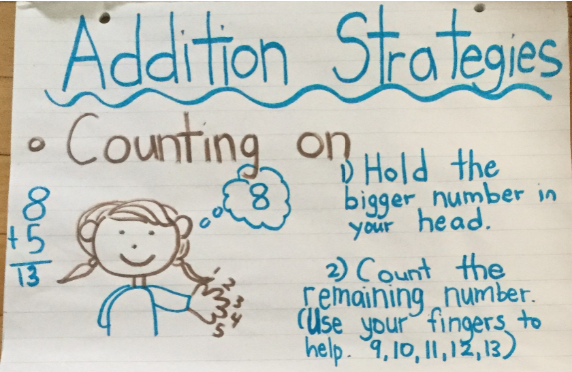 Addition Strategies
• Counting on
8
+5
13
8
1
2
3
4
5
1) Hold the
bigger number in
your head.
2) Count the
remaining number.
(Use your fingers to
help. 9,10,11,12,13)